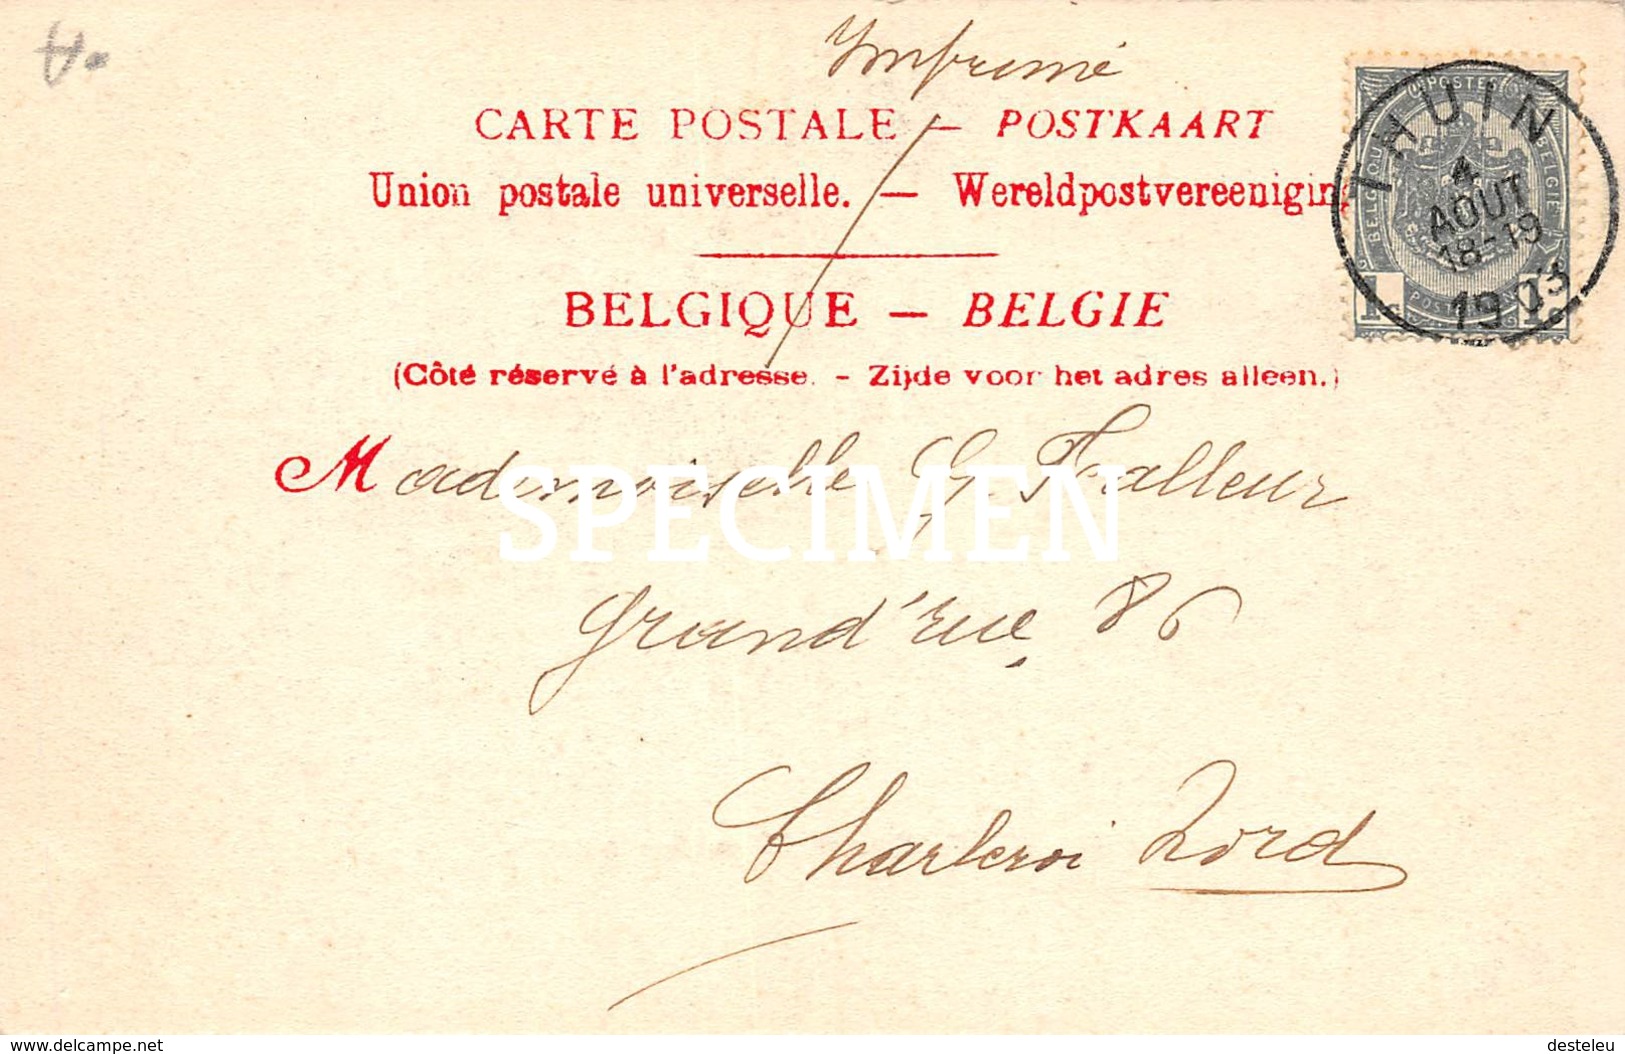 Imprimé
CARTE POSTALE — POSTKAART
Union postale universelle. — Wereldpostvereeniging
BELGIQUE — BELGIE
(Côté réservé à l'adresse. - Zijde voor het adres alleen.)
THUIN
4
AOUT
18-19
19
POSTES
BELGIQUE
BELGIE
Mademoiselle G. Falleur
SPECIMEN
Grand'rue 86
Charleroi Nord
www.delcampe.net
desteleu